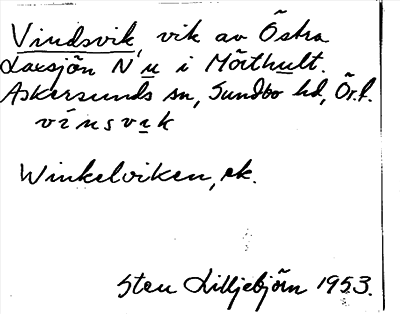 Vindsvik, vik av Östra
Laxsjön N u i Mörthult.
Askersunds sn, Sundbo hd, Ör.l.
vínsvik
Winkelviken, ek.
Sten Lilliebjörn 1953.